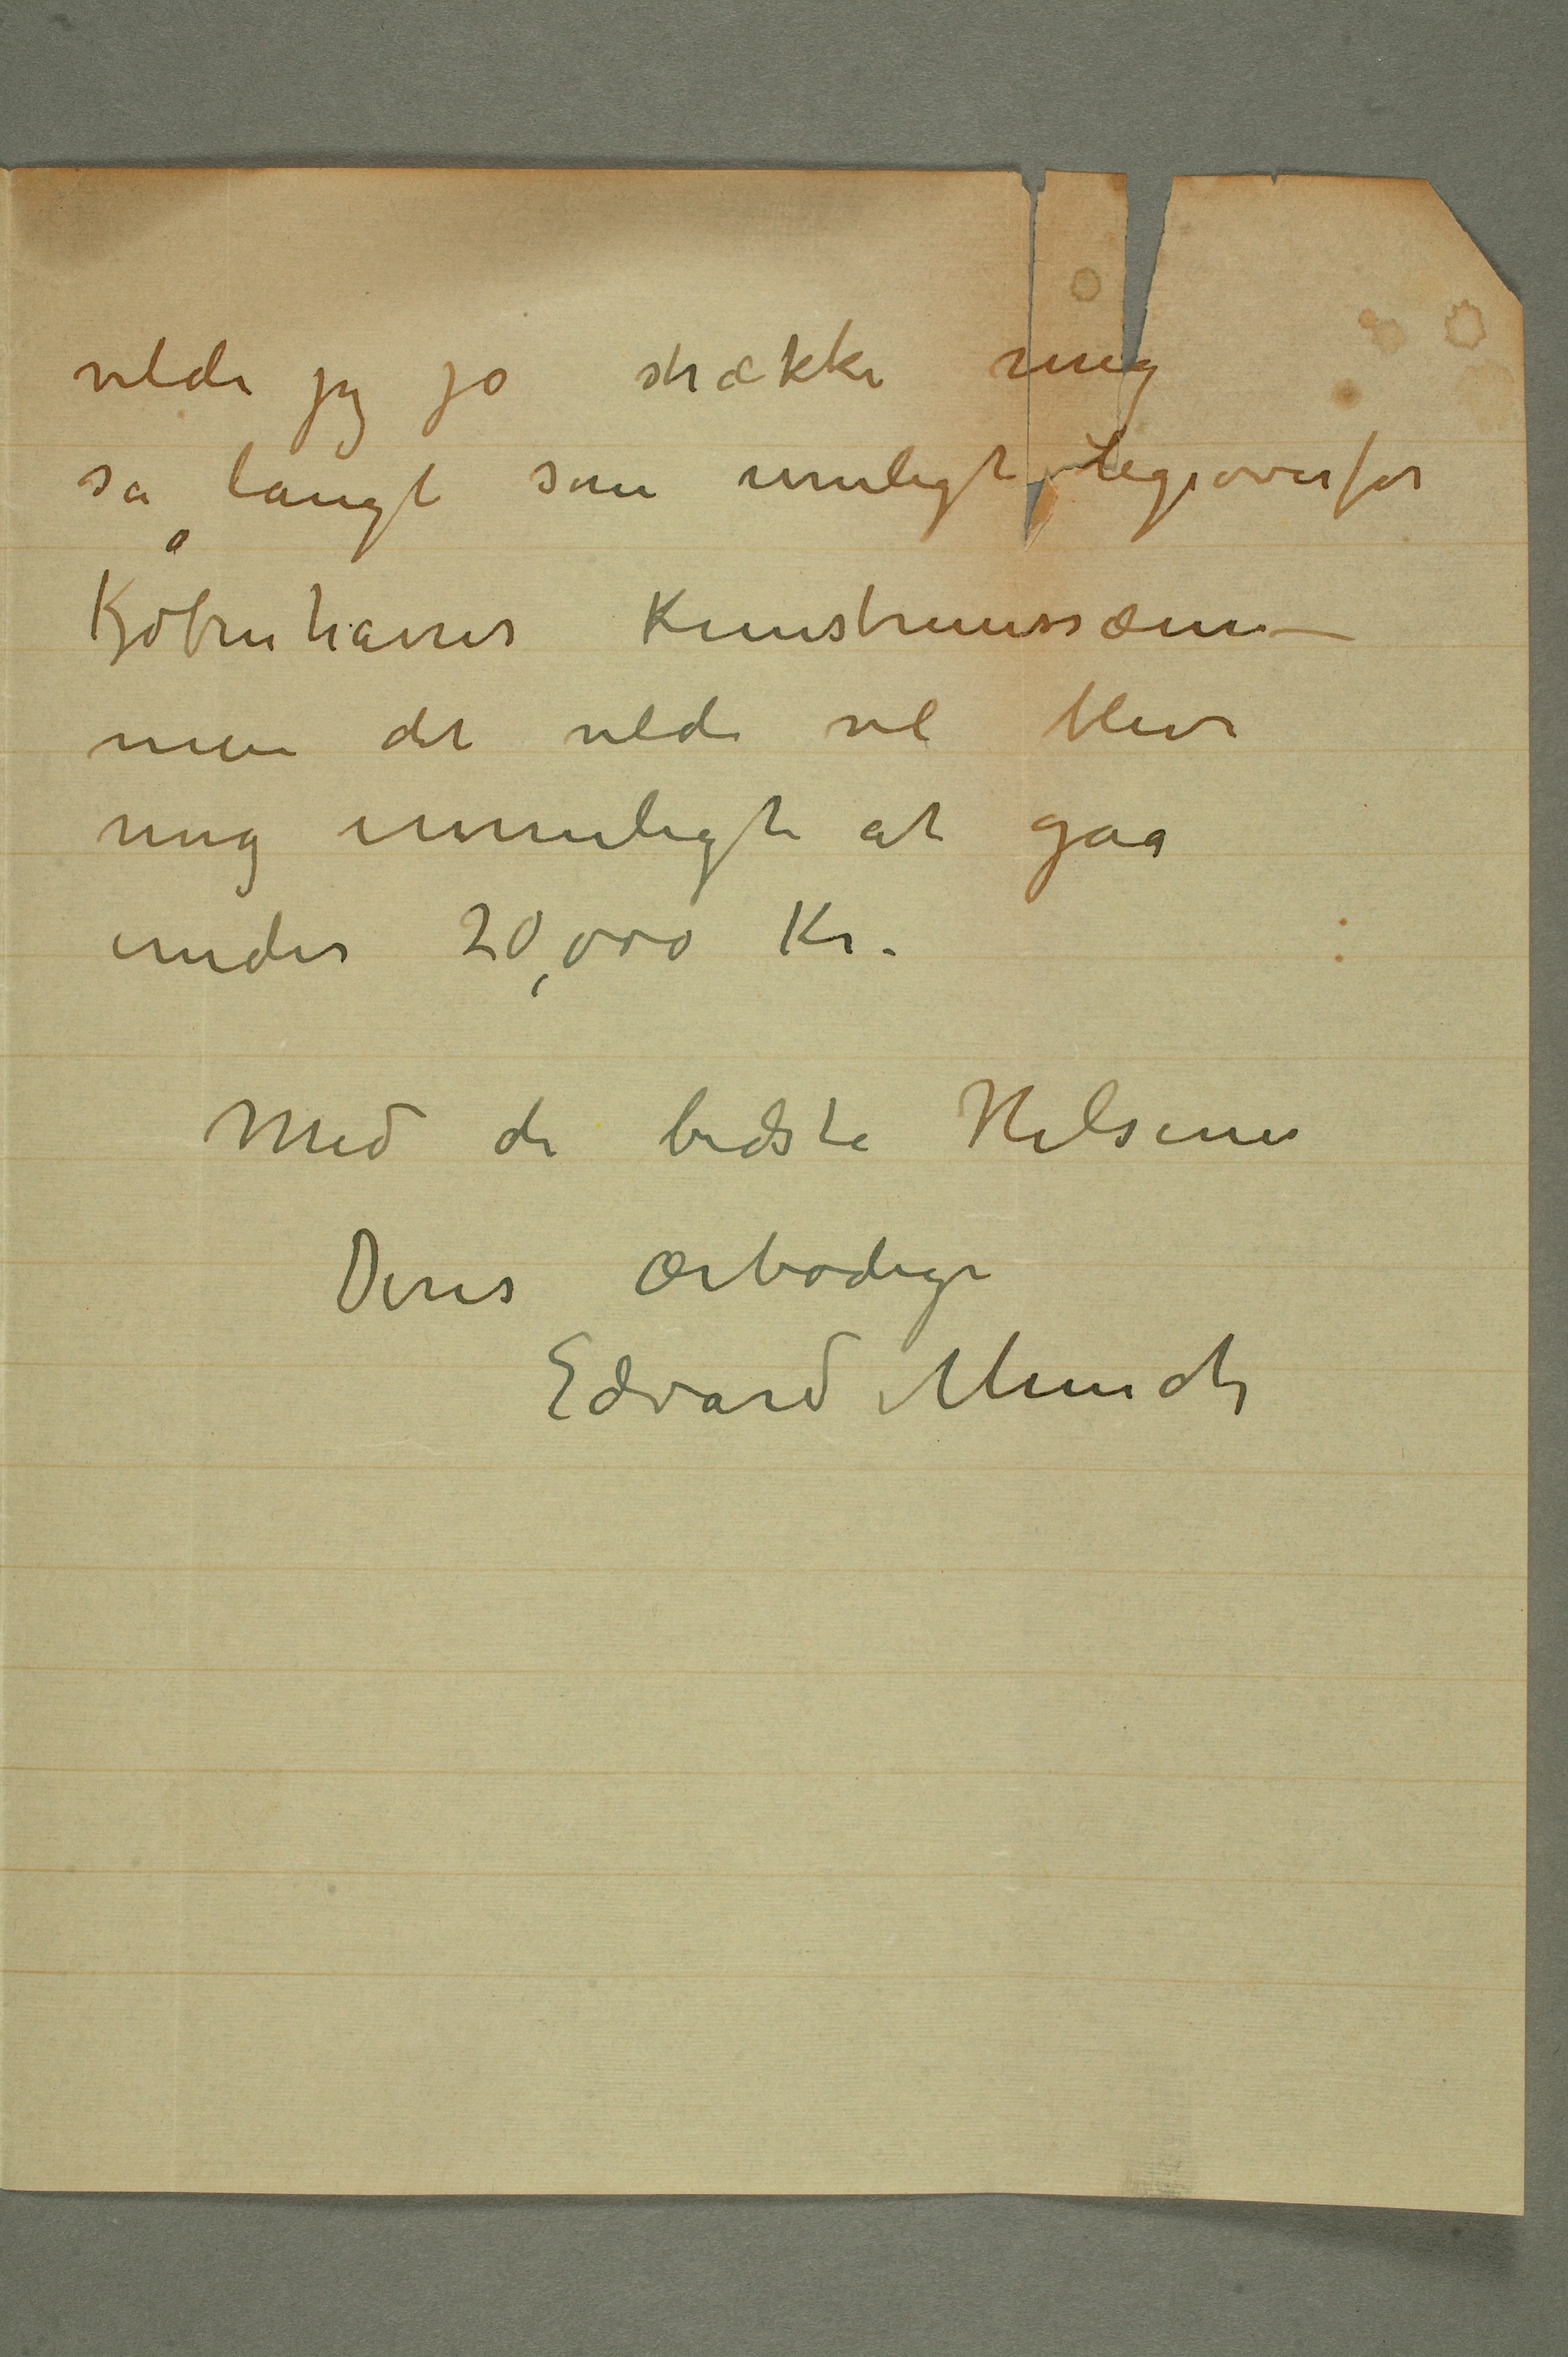 vilde jeg jo strække mig
så langt som muligt ligeoverfor
Kjøbenhavner Kunstmussæum –
men det vilde vel blive
mig umuligt at gaa
under 20,000 Kr.
Med de bedste Hilsener
Deres ærbødige
Edvard Munch